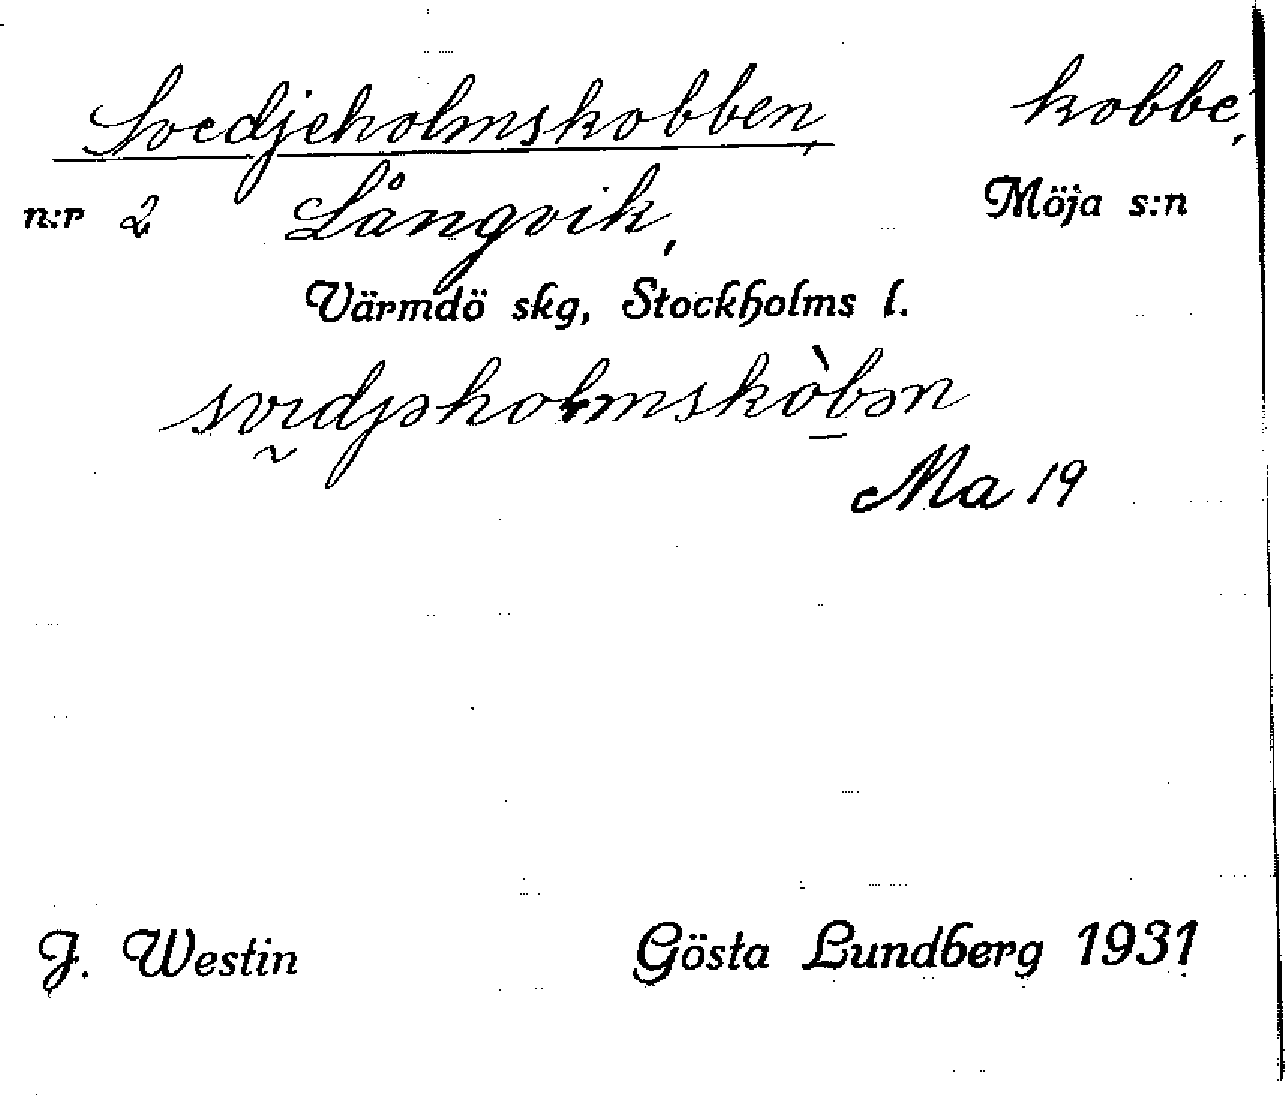 Svedjeholmskobben, kobbe,
n:r 2 Långvik, Möja s:n
Värmdö skg, Stockholms l.
svɪdjəholmskòbən
Ma 19
J. Westin Gösta Lundberg 1931